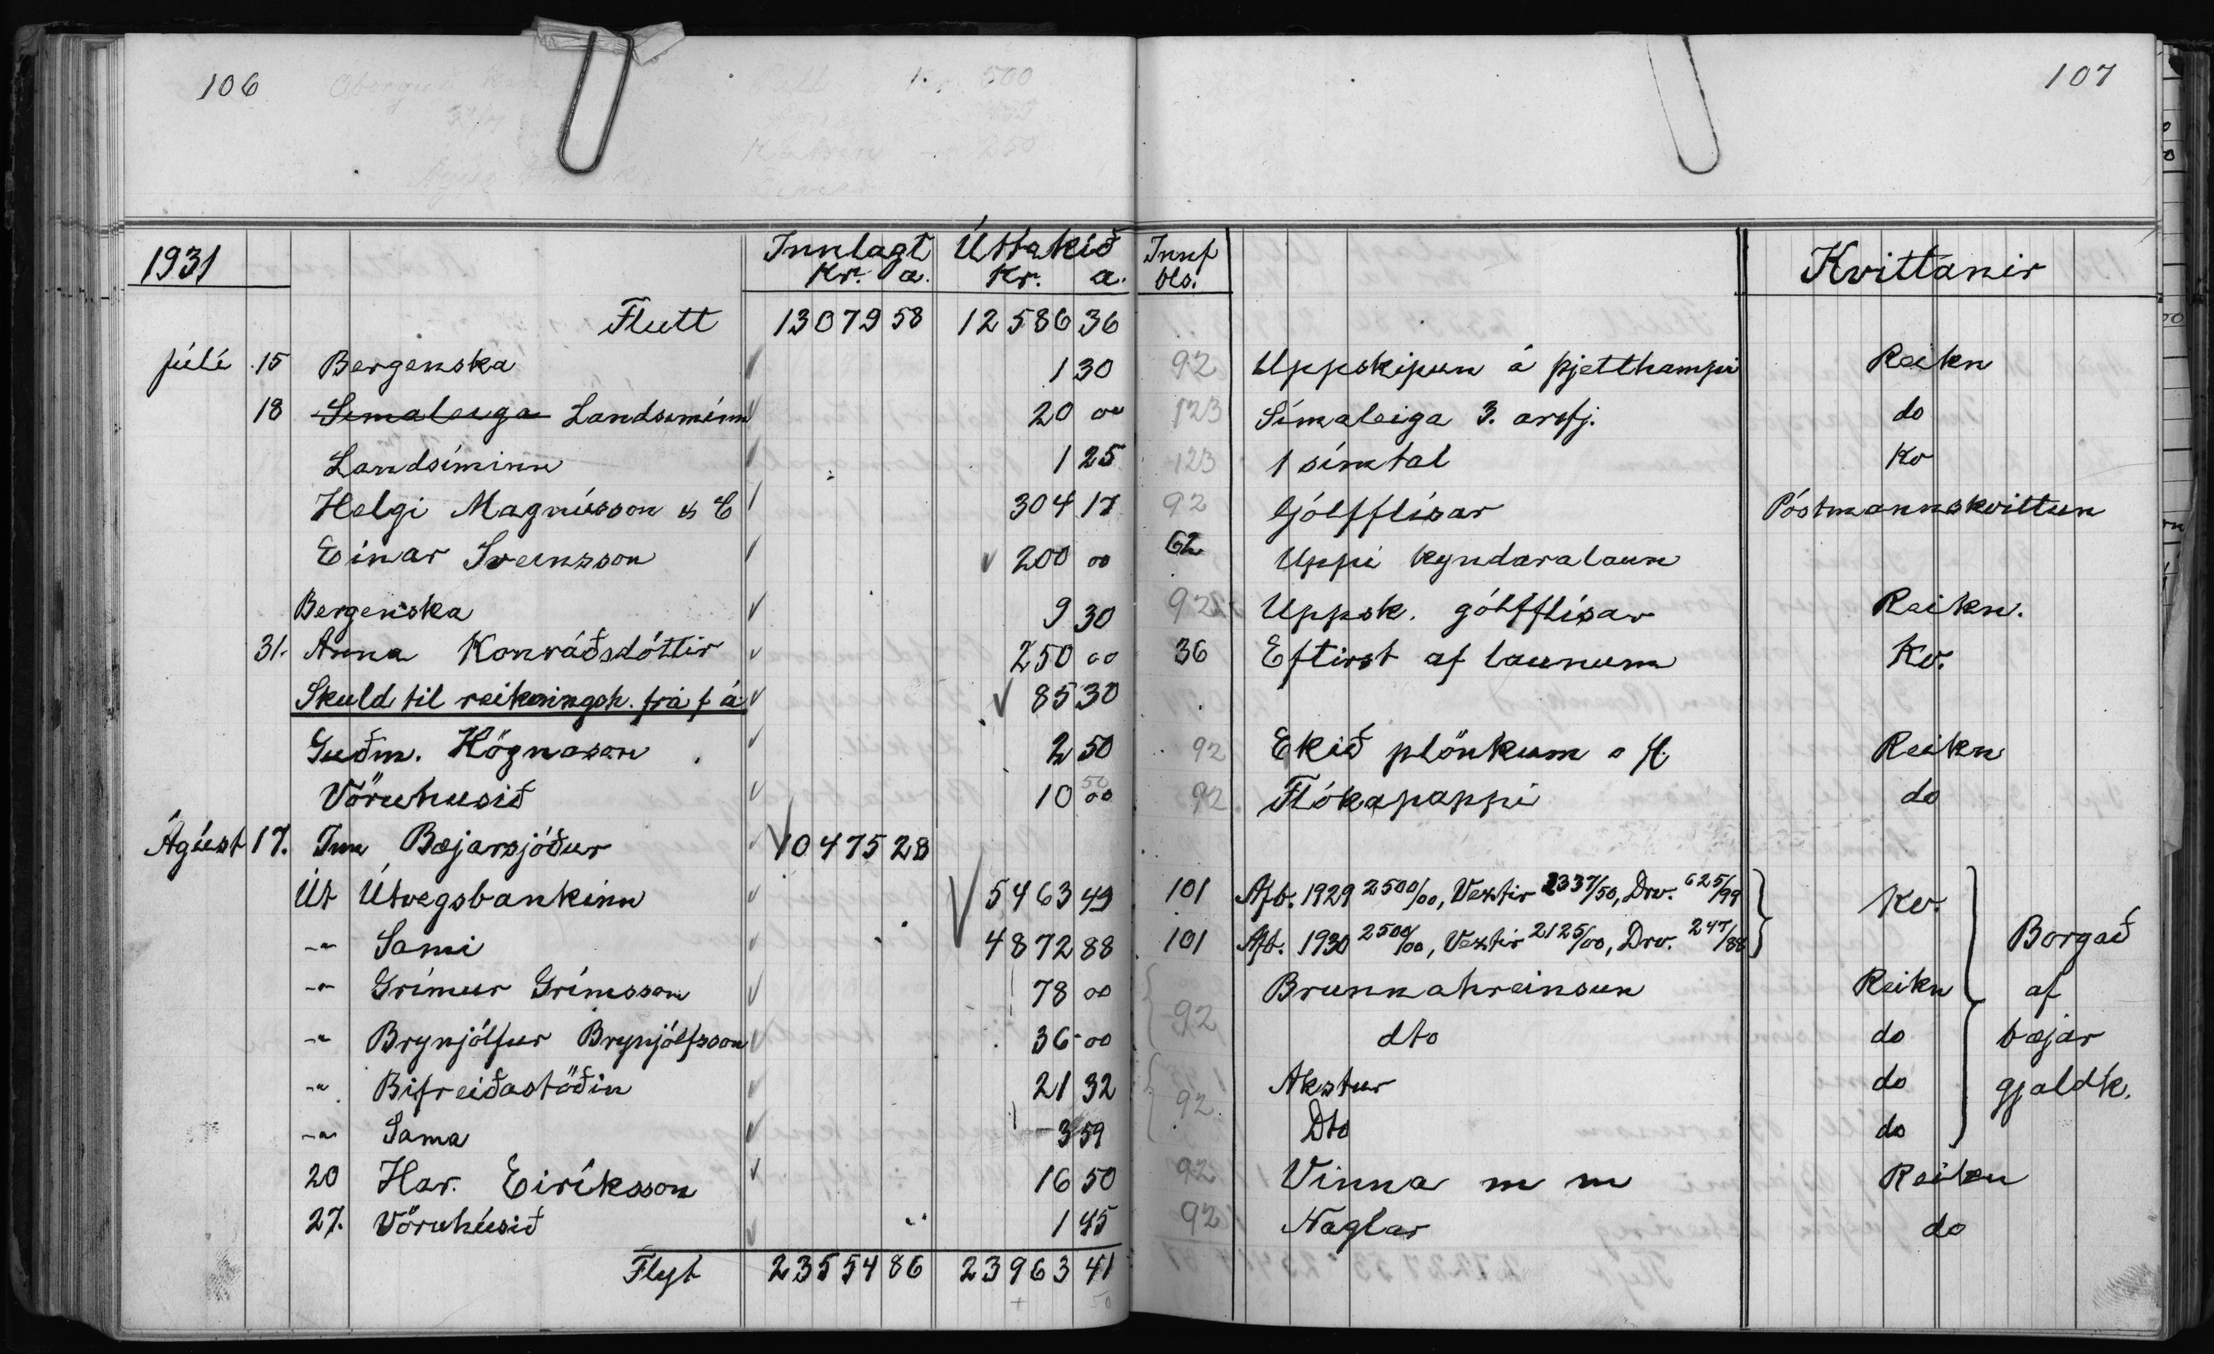 106
107
1931 Innlagt Úttekið Innf Kvittanir
Kr. a. Kr. a. bls.
Flutt 13079 58 12586 36
júlí 15 Bergenska 1 30 92 Uppskipun á þjetthampi Reikn
18 Símaleiga Landsíminn 20 00 123 Símaleiga 3. arsfj. do
Landsíminn 1 25 123 1 símtal Kv
Helgi Magnússon & C 304 17 92 Gólfflísar Póstmannskvittun
Einar Sveinsson 200 00 62 Uppí kyndaralaun
Bergenska 9 30 92 Uppsk. gólfflísar Reikn.
31. Anna Konráðsdóttir 250 00 36 Eftirst af launum Kv.
Skuld til reikningsh. frá f á 85 30
Guðm. Högnason 2 50 92 Ekið plönkum o fl. Reikn
Vöruhusið 10 00 50 92 Flókapappi do
Ágúst 17. Inn Bæjarsjóður 10475 28
Út Útvegsbankinn 5463 49 101 Afb. 1929 2500/00, Vextir 2337/50, Drv. 625/99 Kv.
-"- Sami 4872 88 101 Afb. 1930 2500/00, Vextir 2125/00, Drv. 247/88 Borgað
-"- Grímur Grímsson 78 00 92 Brunnahreinsun Reikn af
-"- Brynjólfur Brynjólfsson 36 00 dto do bæjar
-"- Bifreiðastöðin 21 32 92 Akstur do gjaldk.
-"- Sama 3 59 Dto do
20 Har. Eiríksson 16 50 92 Vinna m m Reikn
27. Vöruhúsið 1 45 92 Naglar do
Flyt 23554 86 23963 41
50